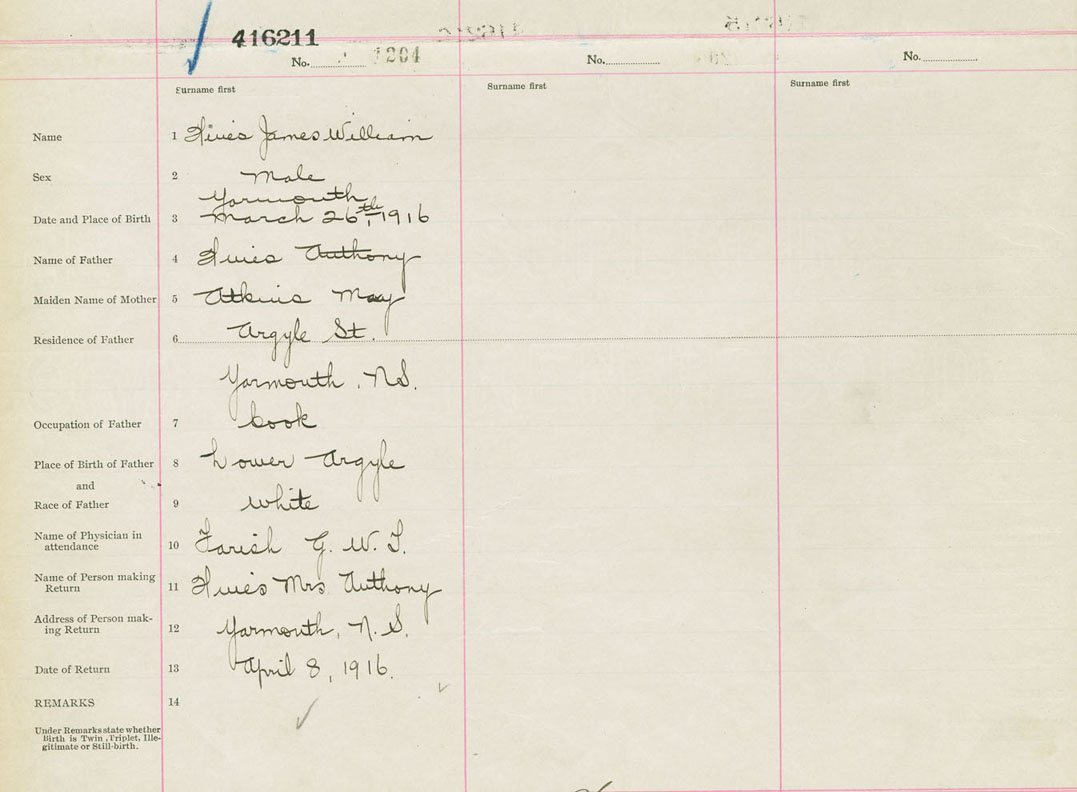 416211
No. 1204 No. No.
Surname first Surname first Surname first
Name 1 Hines James William
Sex 2 Male
Yarmouth
Date and Place of Birth 3 March 26th, 1916
Name of Father 4 Hines Anthony
Maiden Name of Mother 5 Atkins May
Residence of Father 6 Argyle St.
Yarmouth, N.S.
Occupation of Father 7 Cook
Place of Birth of Father 8 Lower Argyle
and
Race of Father 9 White
Name of Physician in
attendance 10 Farish G. W. T.
Name of Person making
Return 11 Hines Mrs Anthony
Address of Person mak-
ing Return 12 Yarmouth, N. S.
Date of Return 13 April 8, 1916.
REMARKS 14
Under Remarks state whether
Birth is Twin, Triplet, Ille-
gitimate or Still-birth.